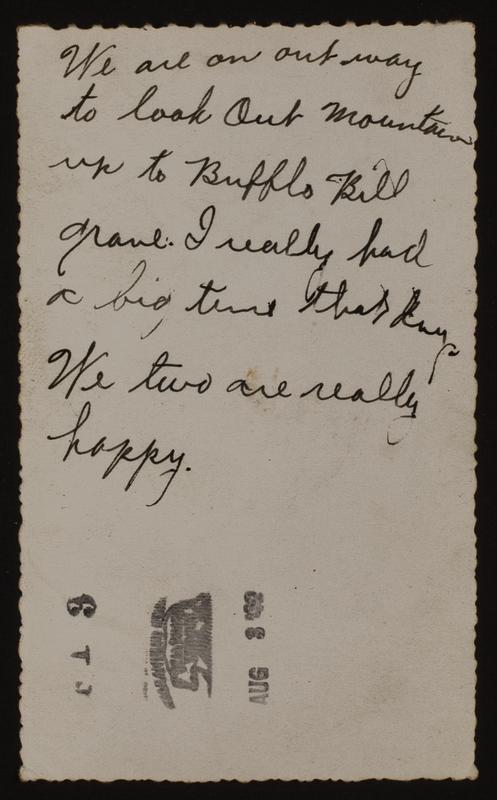 We are on out way
to look Out Mountain
up to Bufflo Bill
grave. I really had
a big time that day
We two are really
happy.
AUG 3